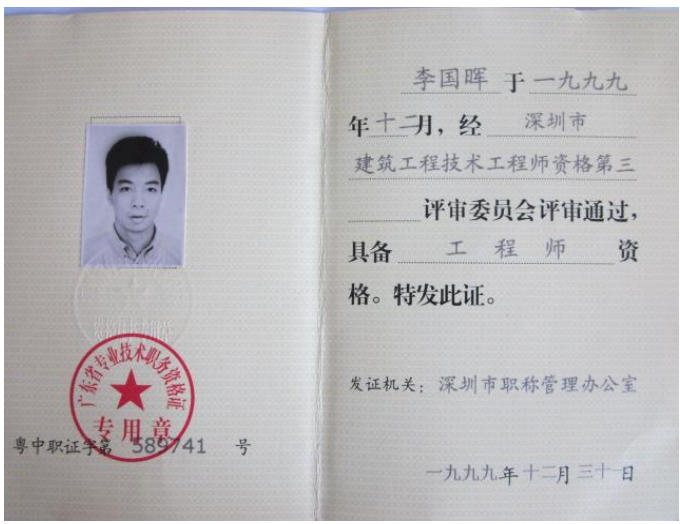 广东省专业技术职务资格证
专用章
粤中职证字第 589741 号
李国晖 于 一九九九
年 十二月，经 深圳市
建筑工程技术工程师资格第三
评审委员会评审通过，
具备 工程师 资
格。特发此证。
发证机关：深圳市职称管理办公室
一九九九年十二月三十一日